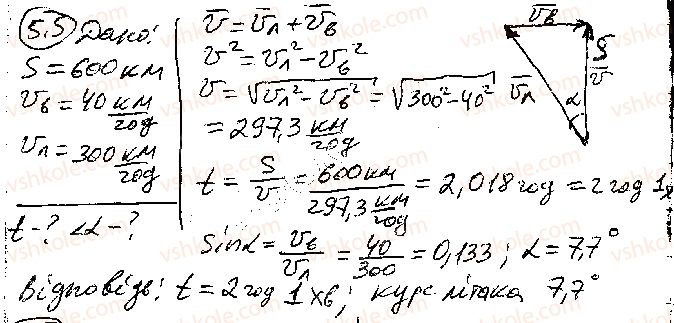 5.5 Дано:
S = 600 км
v_в = 40 км/год
v_л = 300 км/год
t - ? ∠α - ?
v̄ = v̄_л + v̄_в
v² = v_л² - v_в²
v = √(v_л² - v_в²) = √(300² - 40²)
= 297,3 км/год
t = S/v = 600 км / 297,3 км/год = 2,018 год = 2 год 1х
Sinα = v_в/v_л = 40/300 = 0,133 ; α = 7,7°
Відповідь: t = 2 год 1 хв; курс літака 7,7°
v̄_в
S̄
v̄
v̄_л
α